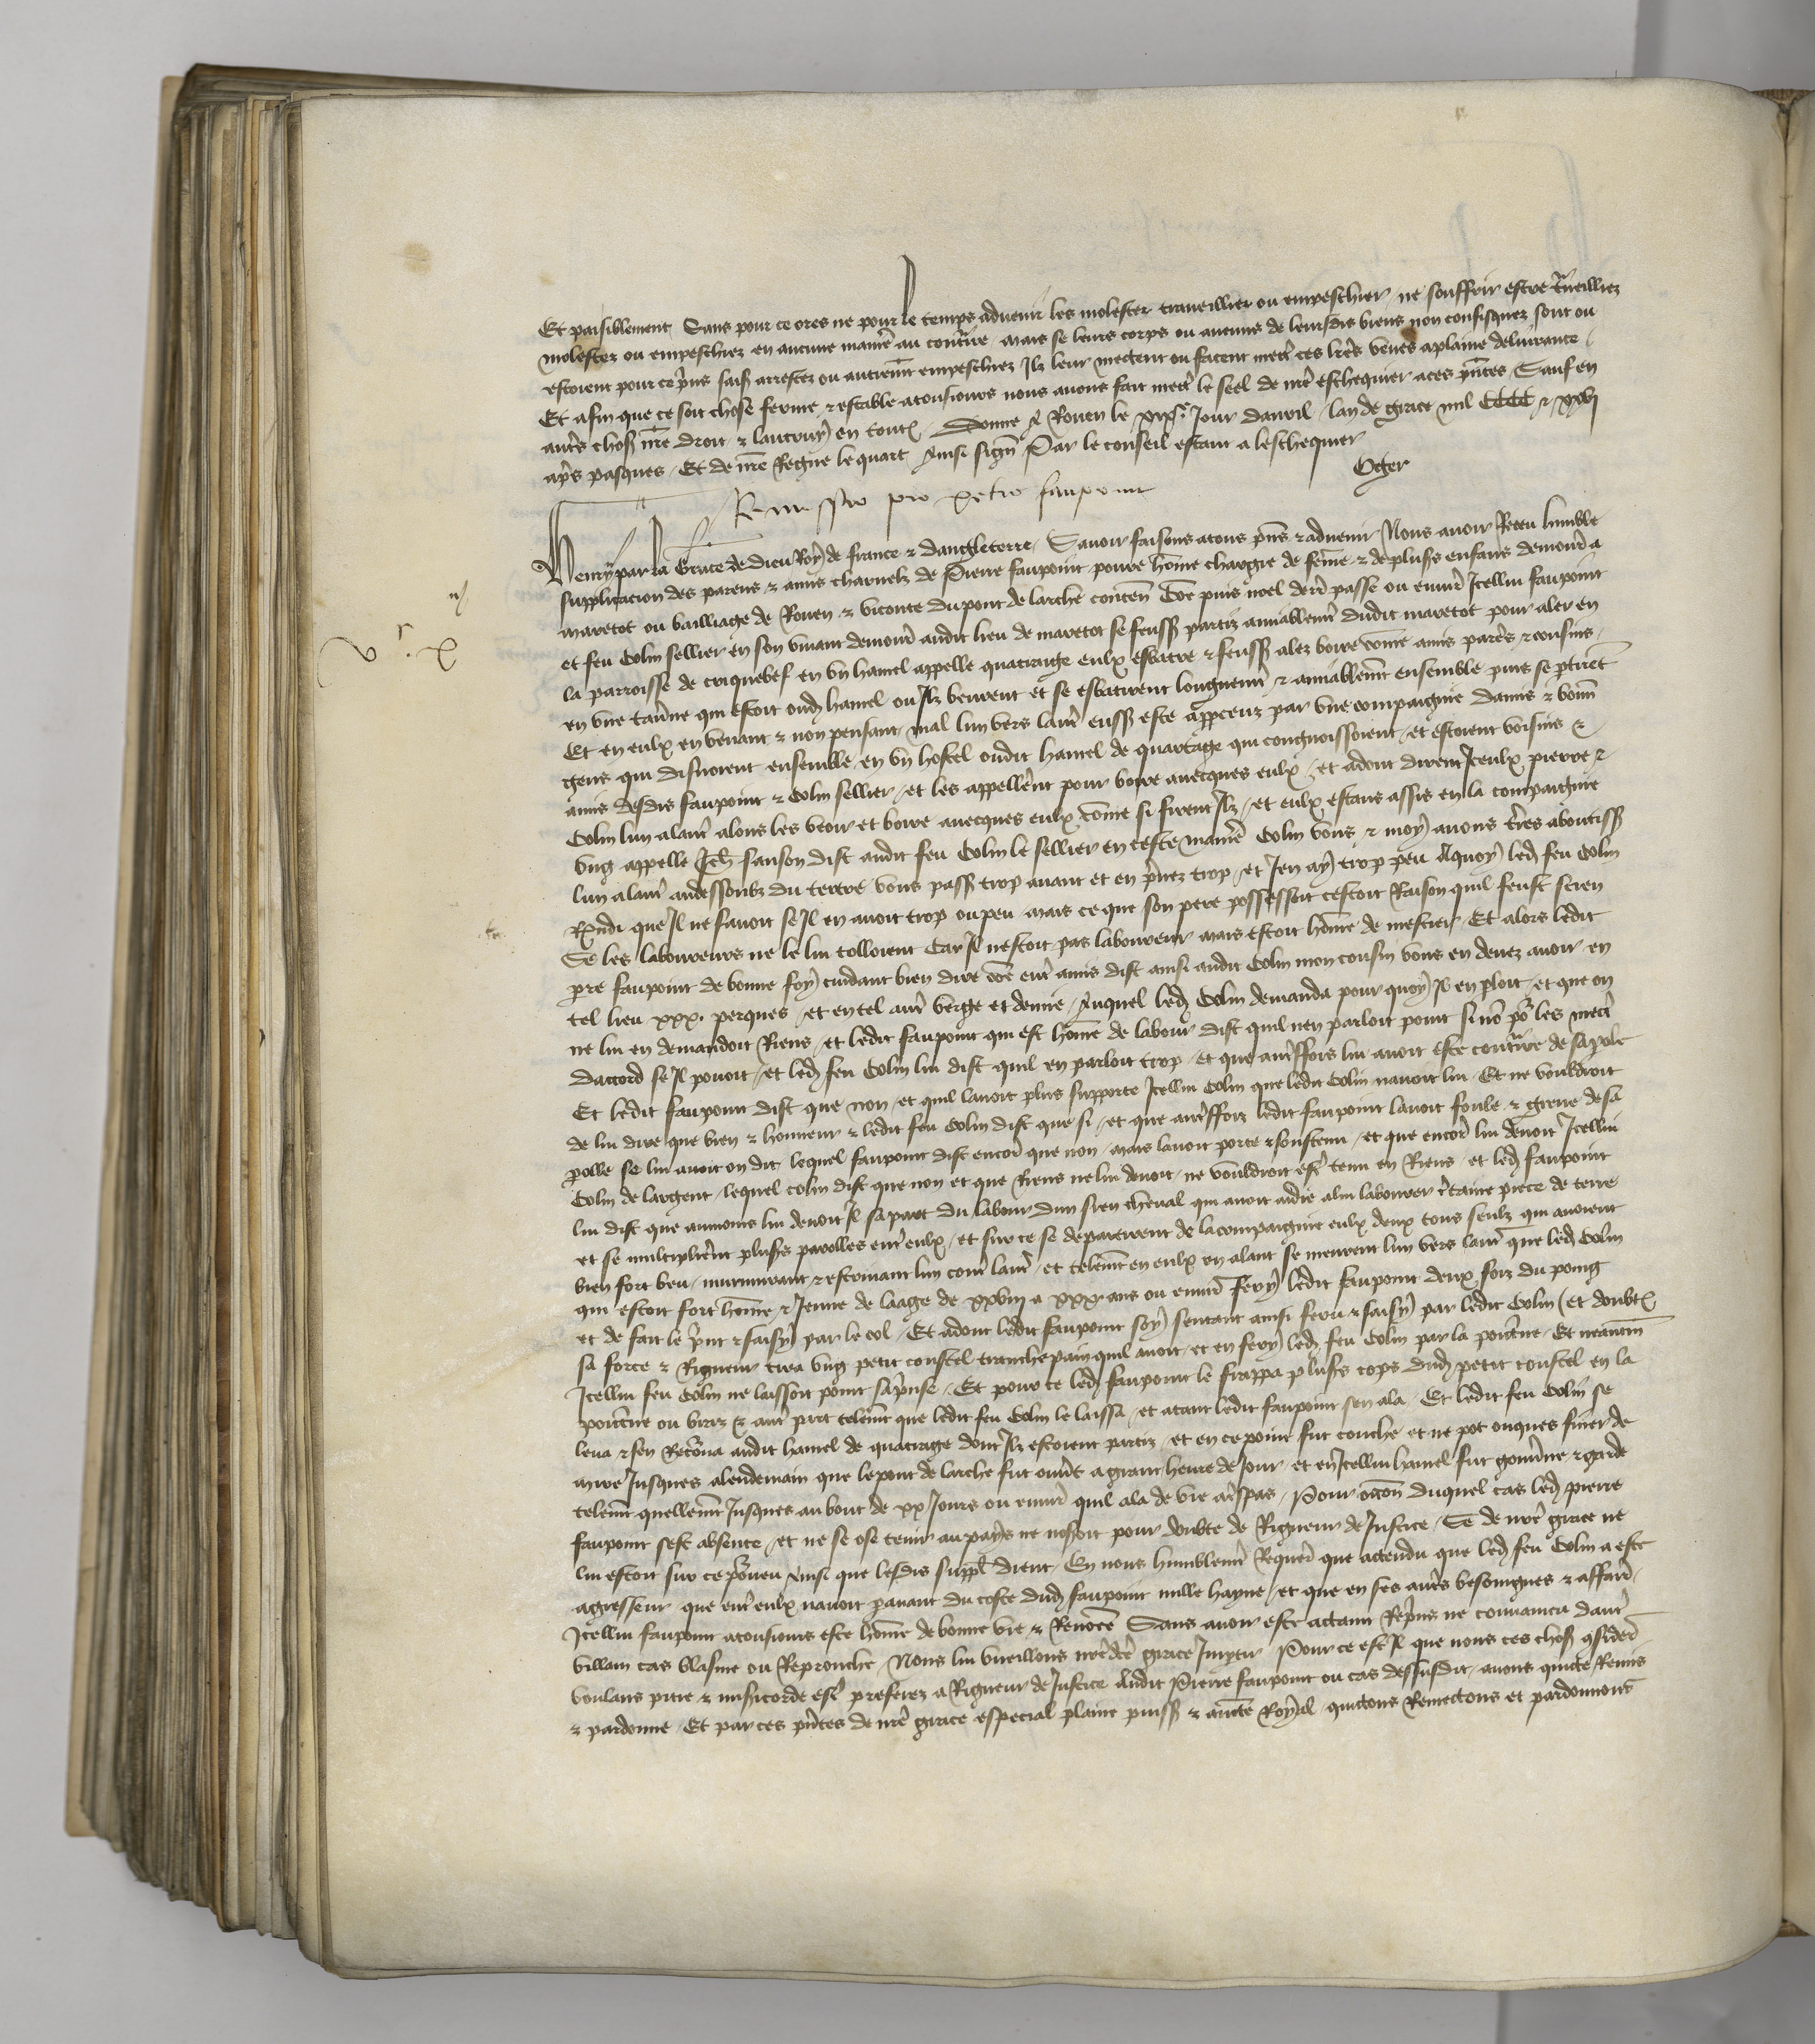 Et paisiblement Sans pour ce ores ne pour le temps advenir les molester traveillier ou empeschier ne souffrir estre traveilliez
molestez ou empeschiez en aucune maniere au contraire mais se leurs corps ou aucuns de leursdis biens non confisquez sont ou
estoient pour ce prins saisis arrestez ou autrement empeschiez Ilz leur mectent ou facent mectre ces lettres veues a plaine delivrance
Et afin que ce soit chose ferme & estable a tousiours nous avons fait mectre le seel de nostre eschequier a ces presentes Sauf en
autres choses nostre droit & lautruy en toutes Donne a Rouen le Jour davril lan de grace mil CCCC & xxvj
apres pasques Et de nostre Regne le quart Ainsi signe Par le conseil estant a leschequier
Oger
Remissio pro petro faupoint
Henry par la Grace de Dieu Roy de france & dangleterre Savoir faisons a tous presens & advenir Nous avoir Receu humble
supplicacion des parens & amis charnelz de Pierre faupoint povre homme chargie de femme & de plusieurs enfans demourant a
maretot ou bailliage de Rouen & viconte du pont de larche contenant Comme puis noel derrain passe ou environ Icellui faupoint
et feu Colin sellier en son vivant demourant audit lieu de maretot se feussent partiz amiablement dudit maretot pour aler en
la parroisse de criquebef en vng hamel appelle quatraige eulx esbatre & feussent alez boire comme amis parens & cousins
en vne taverne qui estoit oudit hamel ou Ilz beurent et se esbatirent longuement & amiablement ensemble puis se partirent
Et en eulx en venant & non pensant mal lun vers lautre eussent este apperceuz par vne compaignie damis & bonnes
gens qui disnoient ensemble en vng hostel oudit hamel de quatrage qui congnoissoient et estoient voisins &
amis desdis faupoint & Colin sellier et les appellerent pour boire avecques eulx et adont dirent Iceulx pierre &
Colin lun a lautre alons les veoir et boire avecques eulx comme si firent Ilz et eulx estans assis en la compaignie
vng appelle Jehan sanson dist audit feu Colin le sellier en ceste maniere Colin vous & moy avons terres aboutissans
lun a lautre au dessoubz du tertre vous passez trop avant et en prenez trop et Jen ay trop peu A quoy ledit feu Colin
Respondi que Il ne savoit se Il en avoit trop ou peu mais ce que son pere possessoit cestoit Raison quil feust sien
Se les laboureurs ne le lui tolloient Car Il nestoit pas laboureur mais estoit homme de mestier Et alors ledit
pierre faupoint de bonne foy cuidant bien dire comme entre amis dist ainsi audit Colin mon cousin vous en devez avoir en
tel lieu xxx. perques et en tel autre verge et demie Auquel ledit Colin demanda pour quoy Il en ploit et que on
ne lui en demandoit Riens et ledit faupoint qui est homme de labour dist quil nen parloit point si non pour les mectre
dacord se Il povoit et ledit feu Colin lui dist quil en parloit trop et que autreffois lui avoit este contraire de sa parole
Et ledit faupoint dist que non et quil lavoit plus supporte Icellui Colin que ledit Colin navoit lui Et ne vouldroit
de lui dire que bien & honneur & ledit feu Colin dist que si et que autreffoiz ledit faupoint lavoit foule & greve de sa
parolle se lui avoit on dit lequel faupoint dist encore que non mais lavoit porte & soustenu et que encore lui devoit Icellui
Colin de largent lequel colin dist que non et que Riens ne lui devoit ne vouldroit estre tenu en Riens et ledit faupoint
lui dist que aumoins lui devoit Il sa part du labour dun sien cheval qui avoit aidie a lui labourer certaine piece de terre
et se multiplierent plusieurs parolles entre eulx et sur ce se departirent de la compaignie eulx deux tous seulz qui avoient
bien fort beu murmurant & estrivant lun contre lautre et telement en eulx en alant se meurent lun vers lautre que ledit Colin
qui estoit fort homme & Jeune de laage de xxviij a xxx. ans ou environ fery ledit faupoint deux foiz du poing
et de fait le print & saisy par le col Et adont ledit faupoint soy sentant ainsi feru & saisy par ledit Colin Et doubtant
sa force & Rigueur tira vng petit coustel trenchepain quil avoit et en fery ledit feu Colin par la poictrine Et neantmoins
Icellui feu Colin ne laissoit point sa prinse Et pour ce ledit faupoint le frappa plusieurs cops dudit petit coustel en la
poictrine ou braz & autre part telement que ledit feu Colin le laissa et atant ledit faupoint sen ala Et ledit feu Colin se
leva & sen Retourna audit hamel de quatrage dont Ilz estoient partiz et en ce point fut couche et ne pot onques finer de
mire Jusques a lendemain que le pont de larche fut ouvert a grant heure de Jour et en Icellui hamel fut gouverne & garde
telement quellement Jusques au bout de xx Jours ou environ quil ala de vie a trespas Pour occasion duquel cas ledit pierre
faupoint sest absente et ne se ose tenir au pays ne nosoit pour doubte de Rigueur de Justice Se de nostre grace ne
lui estoit sur ce pourveu Ainsi que lesdis supplians dient En nous humblement Requerant que actendu que ledit feu Colin a este
agresseur que entre eulx navoit paravant du coste dudit faupoint nulle hayne et que en ses autres besoingnes & affaires
Icellui faupoint a tousiours este homme de bonne vie & Renommee Sans avoir este actaint Reprins ne convaincu dautre
villain cas blasme ou Reprouche Nous lui vueillons nostredicte grace Impartir Pour ce est Il que nous ces choses considerees
voulans pitie & misericorde estre preferez a Rigueur de Justice Audit Pierre faupoint ou cas dessusdit avons quicte Remis
& pardonne Et par ces presentes de nostre grace especial plaine puissance & auctorite Royal quictons Remectons et pardonnons